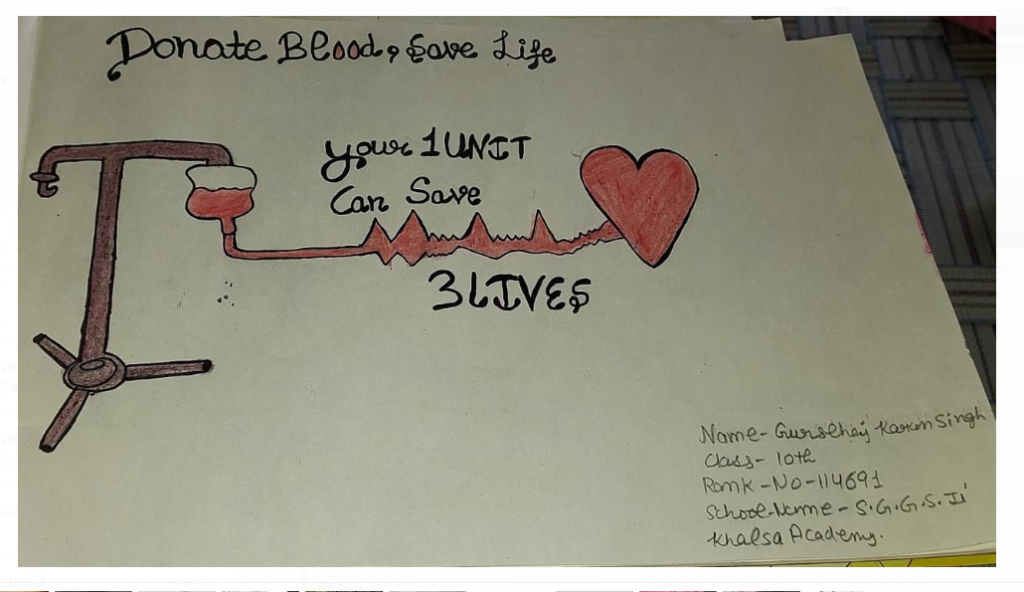 Donate Blood, Save Life
your 1 UNIT
Can Save
3 LIVES
Name- Gursehaj Karan Singh
Class- 10th
Romk-No-114691
School-Name- S.G.G.S. Ji
Khalsa Academy.